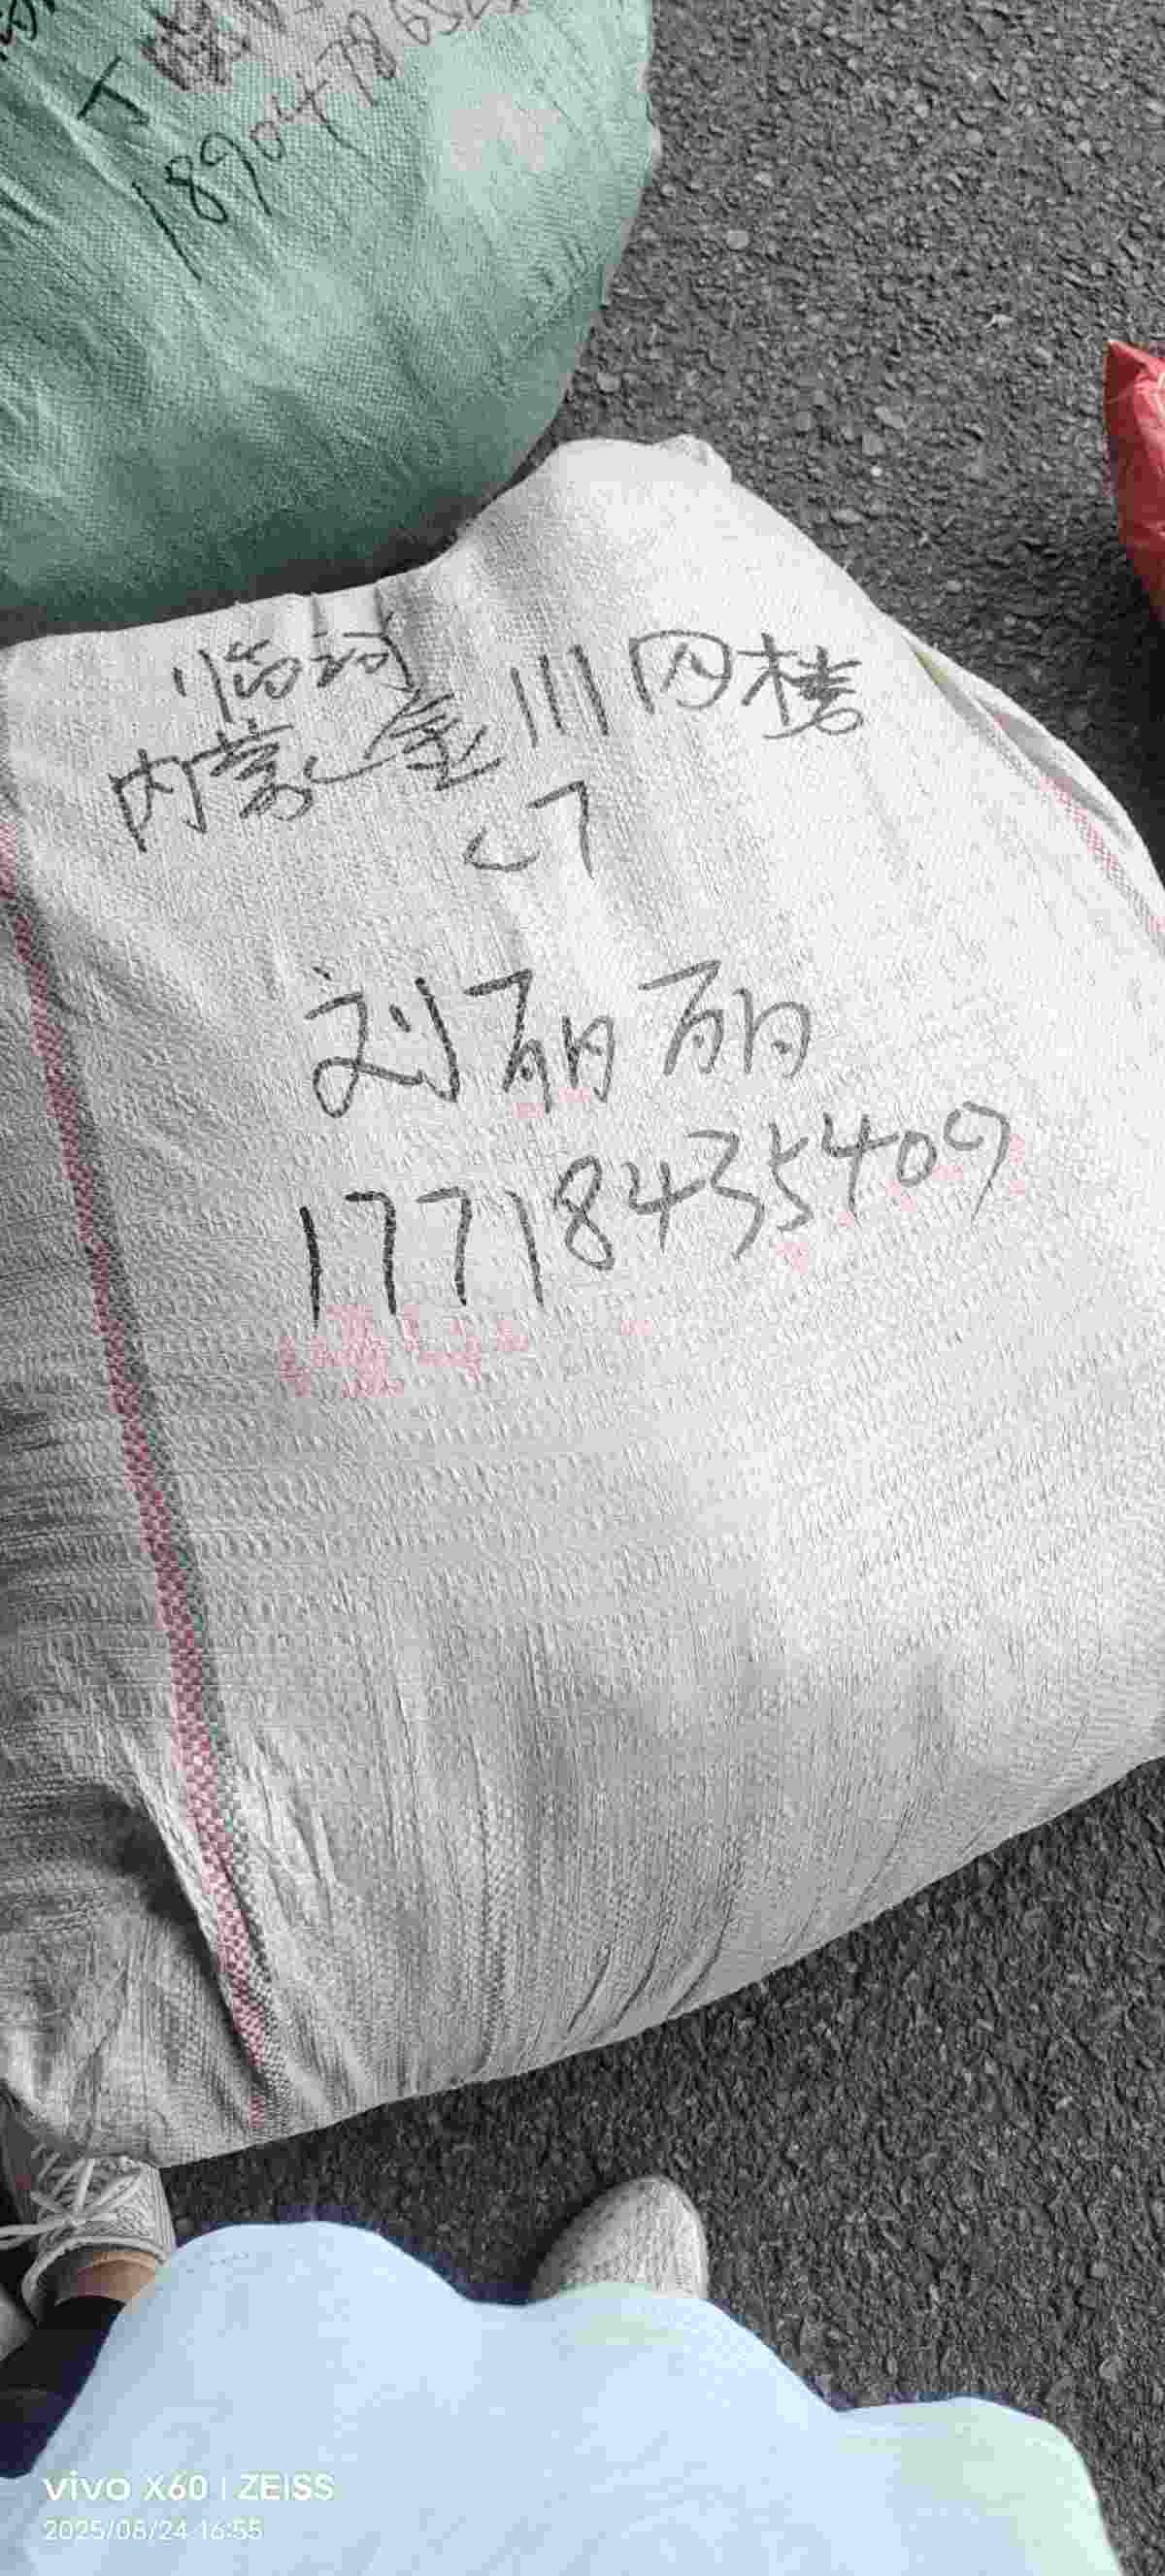 丁
1890478652
临河
内蒙金川四楼
C7
刘丽丽
17718435409
vivo X60 | ZEISS
2025/08/24 16:55